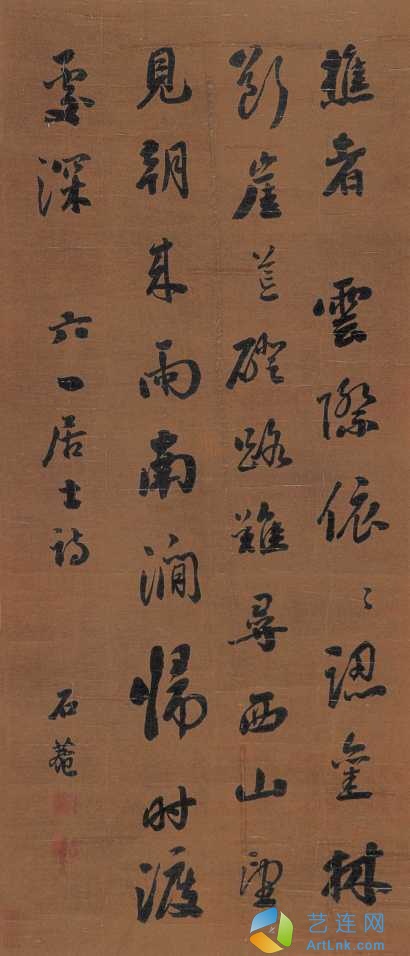 樵者 雲際依〻認舊林
斷崖荒磴路難尋西山望
見朝來雨南澗歸時渡
處深 六一居士詩 石菴
艺连网
ArtLnk.com